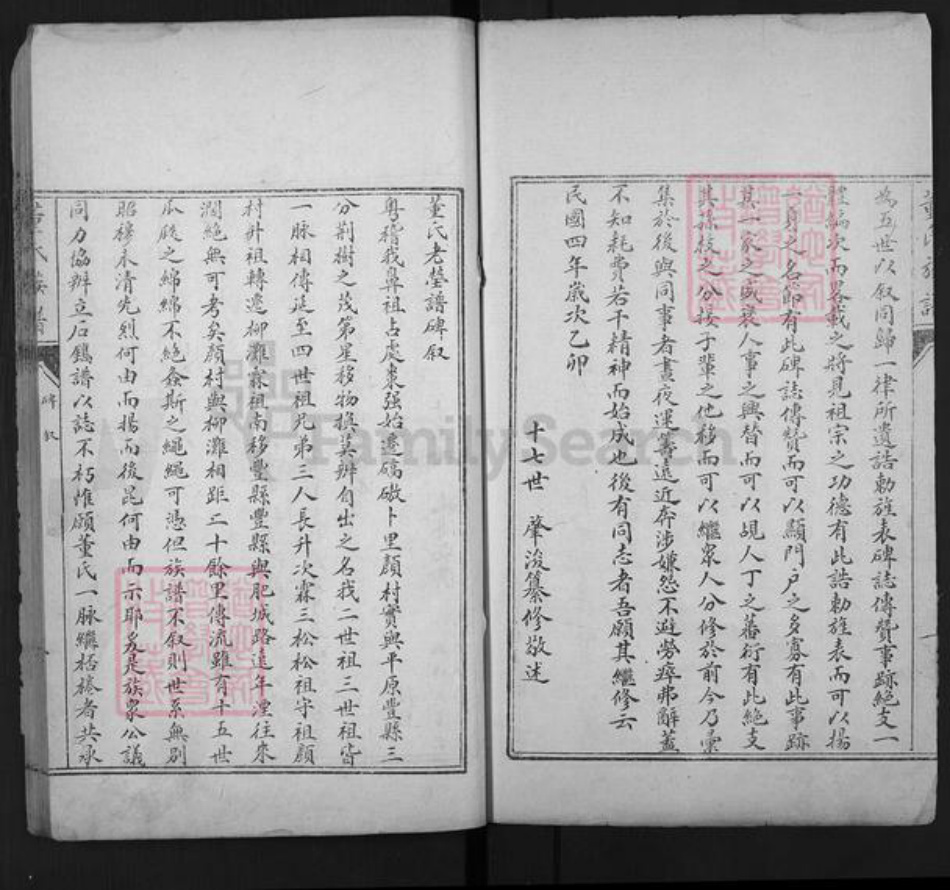 為五世以叙同歸一律所遺誥勅旌表碑誌傳贊事跡絕支一
體編次而畧載之將見祖宗之功德有此誥勅旌表而可以揚
一身之名節有此碑誌傳贊而可以顯門户之多寡有此事跡
其一家之盛衰人事之興替而可以覘人丁之蕃衍有此絕支
其孫枝之分接子輩之他移而可以繼眾人分修於前今乃彙
集於後與同事者晝夜運籌遠近奔涉嫌怨不避勞瘁弗辭蓋
不知耗費若干精神而始成也後有同志者吾願其繼修云
民國四年歲次乙卯
十七世 肇浚纂修敬述
董氏老塋譜碑叙
粵稽我鼻祖占處棗强始遷礄磝卜里顏村實與平原豐縣三
分荆樹之茂第星移物換莫辨自出之名我二世祖三世祖皆
一脉相傳延至四世祖兄弟三人長升次霖三松松祖守祖顏
村升祖轉遷柳灘霖祖南移豐縣豐縣與肥城路遠年湮往來
濶絕無可考矣顏村與柳灘相距二十餘里傳流雖有十五世
瓜瓞之綿綿不絕螽斯之繩繩可憑但族譜不叙則世系無别
昭穆未清先烈何由而揚而後昆何由而示耶爰是族眾公議
同力協辦立石鐫譜以誌不朽惟願董氏一脉繼桮棬者共承
董氏族譜
碑叙
董氏族譜
FamilySearch